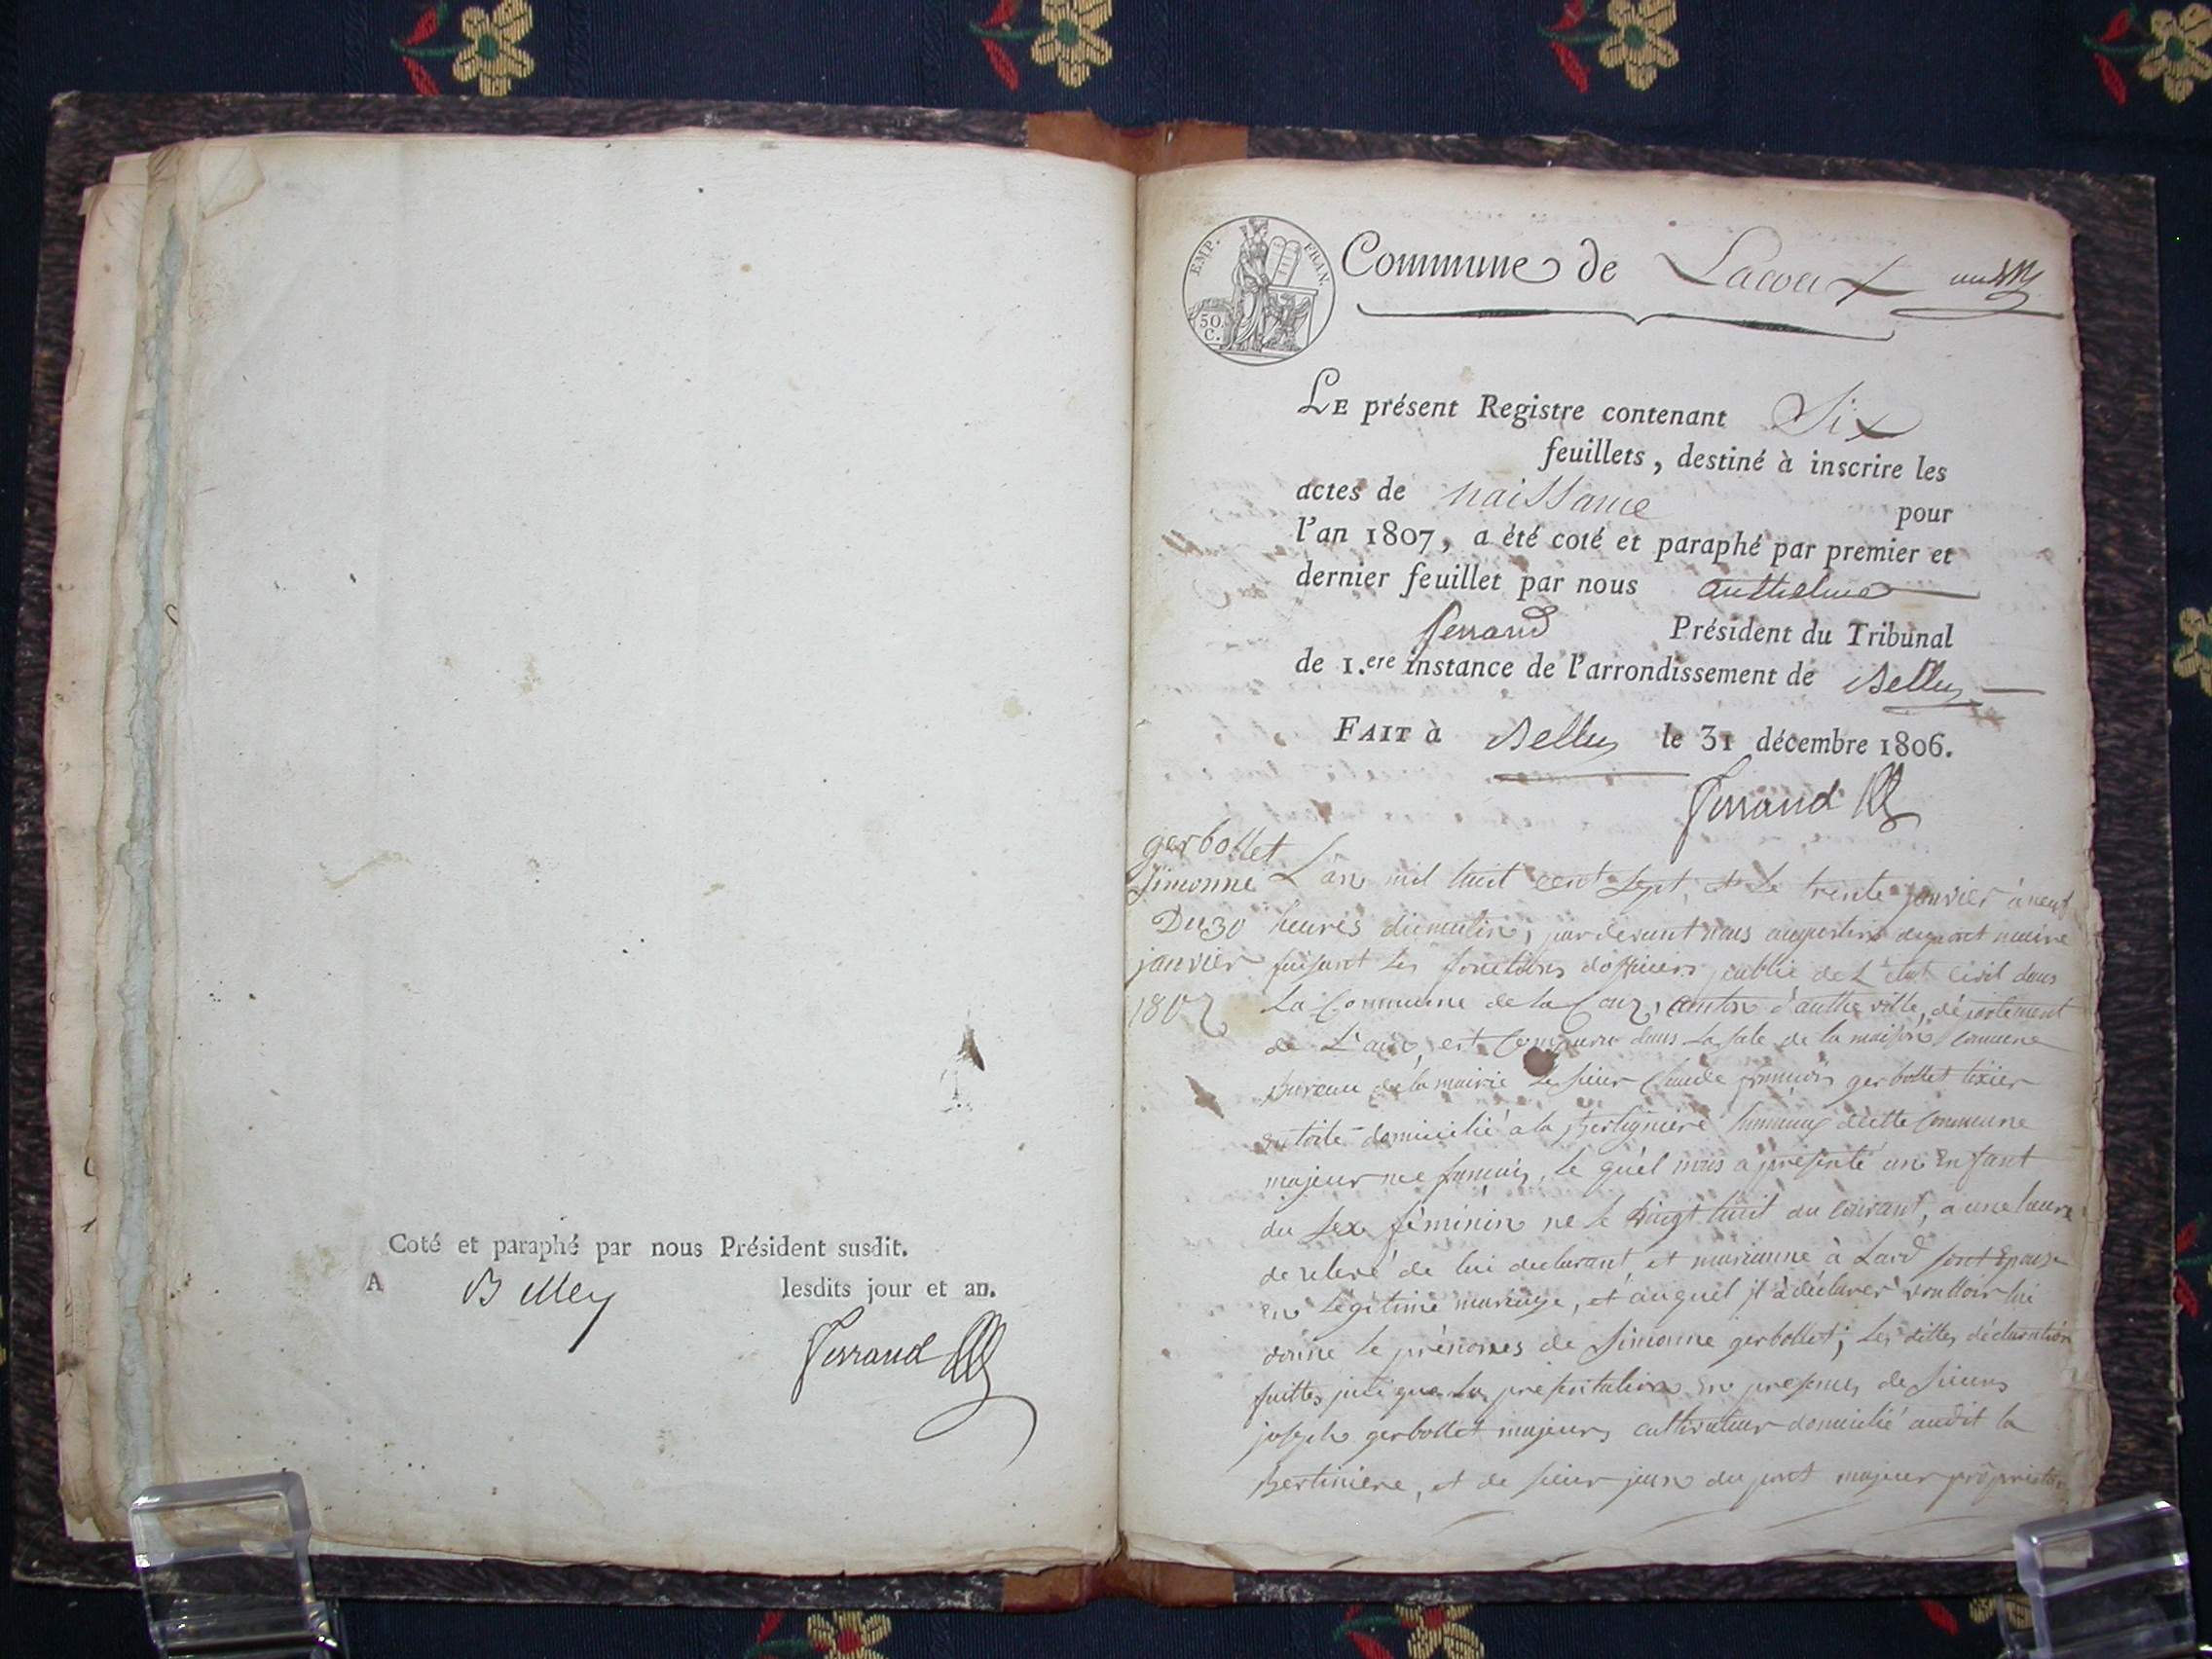 Coté et paraphé par nous Président susdit.
A Belley lesdits jour et an.
Ferrand
EMP. FRAN.
50.
C.
Commune de Lacoux un
LE présent Registre contenant Six
feuillets, destiné à inscrire les
actes de naissance pour
l'an 1807, a été coté et paraphé par premier et
dernier feuillet par nous anthelme
ferrand Président du Tribunal
de 1.ere instance de l'arrondissement de Belley
FAIT à Belley le 31 décembre 1806.
Ferrand
gerbollet
Simonne
Du 30
janvier
1807
L'an mil huit cent sept, et le trente janvier à neuf
heures du matin, pardevant nous augustin maire
faisant les fonctions d'officiers public de L'état Civil dans
La Commune de la Couz, canton d'autheville, département
de L'ain, est Comparu dans La sale de la maison commune
Bureau de la mairie Le sieur Claude françois gerbollet tixier
en toile domicilié à la Bertignière hameau de cette Commune
majeur françois, le quel nous a présenté un Enfant
du sexe féminin né le vingt huit du courant, a une heure
de relevé de lui declarant et marianne à Lard son Epouse
en Légitime mariage, et auquel jl à déclarer voulloir lui
donné le prénoms de Simonne gerbollet; Les dittes déclaration
faittes que La présentation En présence de sieurs
joseph gerbollet majeurs cultivateur domicilié audit la
Bertiniere, et de sieur jean du port majeur propriétai